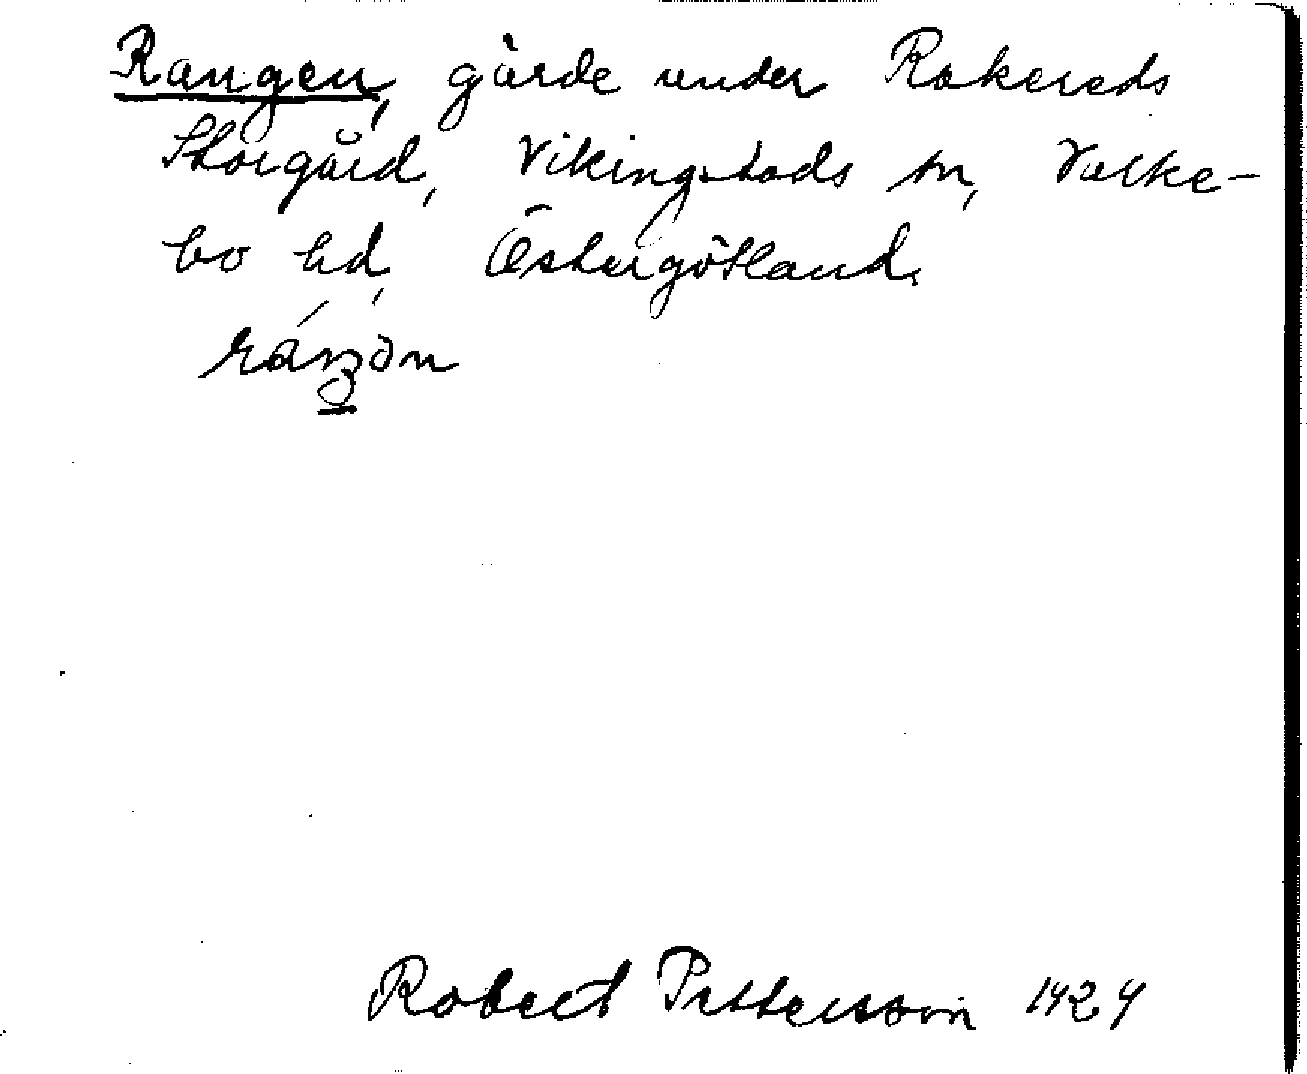 Rangen, gärde under Rakereds
Storgård, Vikingstads sn, Valke-
bo hd, Östergötland.
Robert Pettersson 1924